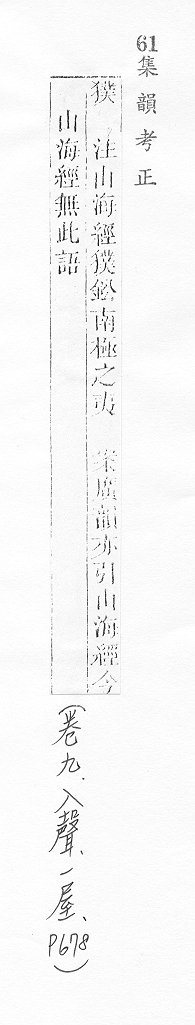 61集韻考正
獛 注山海經獛鈆南極之夷 案廣韻亦引山海經今
山海經無此語
(卷九、入聲、一屋、P678)